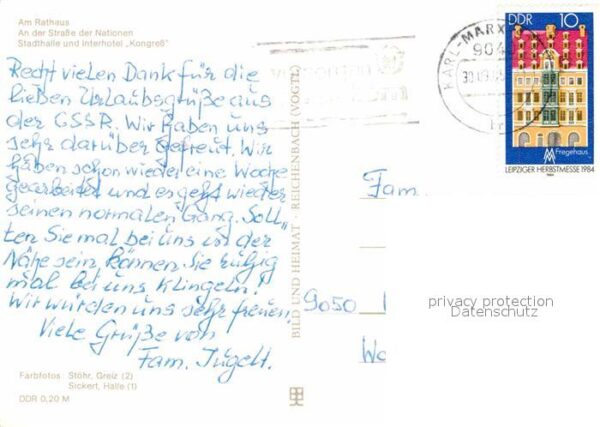 Am Rathaus
An der Straße der Nationen
Stadthalle und Interhotel „Kongreß"
Recht vielen Dank für die
lieben Urlaubsgrüße aus
der CSSR. Wir haben uns
sehr darüber gefreut. Wir
haben schon wieder eine Woche
gearbeitet und es geht wieder
seinen normalen Gang. Soll„
ten Sie mal bei uns in der
Nähe sein, können Sie ruhig
mal bei uns klingeln!
Wir würden uns sehr freuen.
Viele Grüße von
Fam. Jügelt.
Farbfotos Stöhr, Greiz (2)
Sickert, Halle (1)
DDR 0,20 M
BILD UND HEIMAT - REICHENBACH (VOGTL)
KARL-MARX
DDR 10
Fregehaus
LEIPZIGER HERBSTMESSE 1984
Fam.
9050
privacy protection
Datenschutz